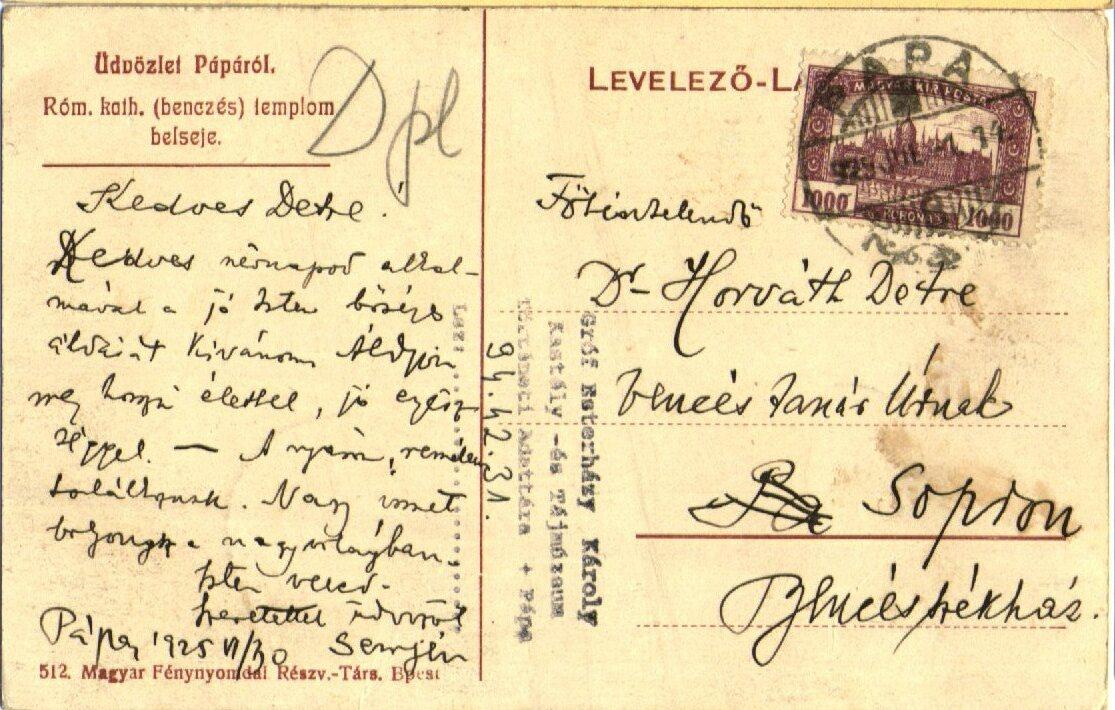 Üdvözlet Pápáról.
Róm. kath. (benczés) templom
belseje.
Dpl
Kedves Detre!
Kedves névnapod alkal-
mával a jó Isten bőséges
áldását kívánom. Áldjon
meg hosszú élettel, jó egész-
séggel. — A nyáron, remélem
találkozunk. Nagy
a nagyvilágban.
Isten veled.
Szeretettel üdvözöl
Pápa, 1925 VI/30 Semjén
512. Magyar Fénynyomdai Részv.-Társ. Bpest
LEVELEZŐ-LA
PAPA
925 JUL
MAGYAR KIR. POSTA
1000 KORONA 1000
Főtisztelendő
Dr Horváth Detre
bencés tanár Úrnak
Sopron
Bencés székház.
Gróf Esterházy Károly
Kastély -és Tájmúzeum
Történeti Adattára + Pápa
94.42.31.
Lsz: